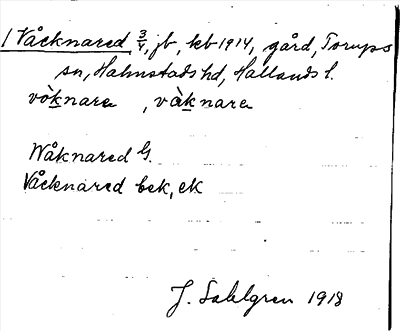 1 Våcknared 3/4, jb, kb 1914, gård, Torups
sn, Halmstads hd, Hallands l.
vòknarɐ, vàknarɐ
Wåknared G.
Våcknared bek, ek
J. Sahlgren 1918